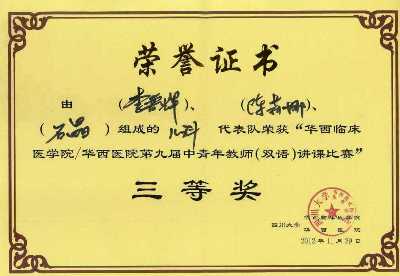 荣誉证书
由(李晋辉)、(陈莉娜)、
(石晶)组成的儿科代表队荣获“华西临床
医学院/华西医院第九届中青年教师(双语)讲课比赛”
三等奖
四川大学
华西临床医学院
华西医院
2012年11月29日